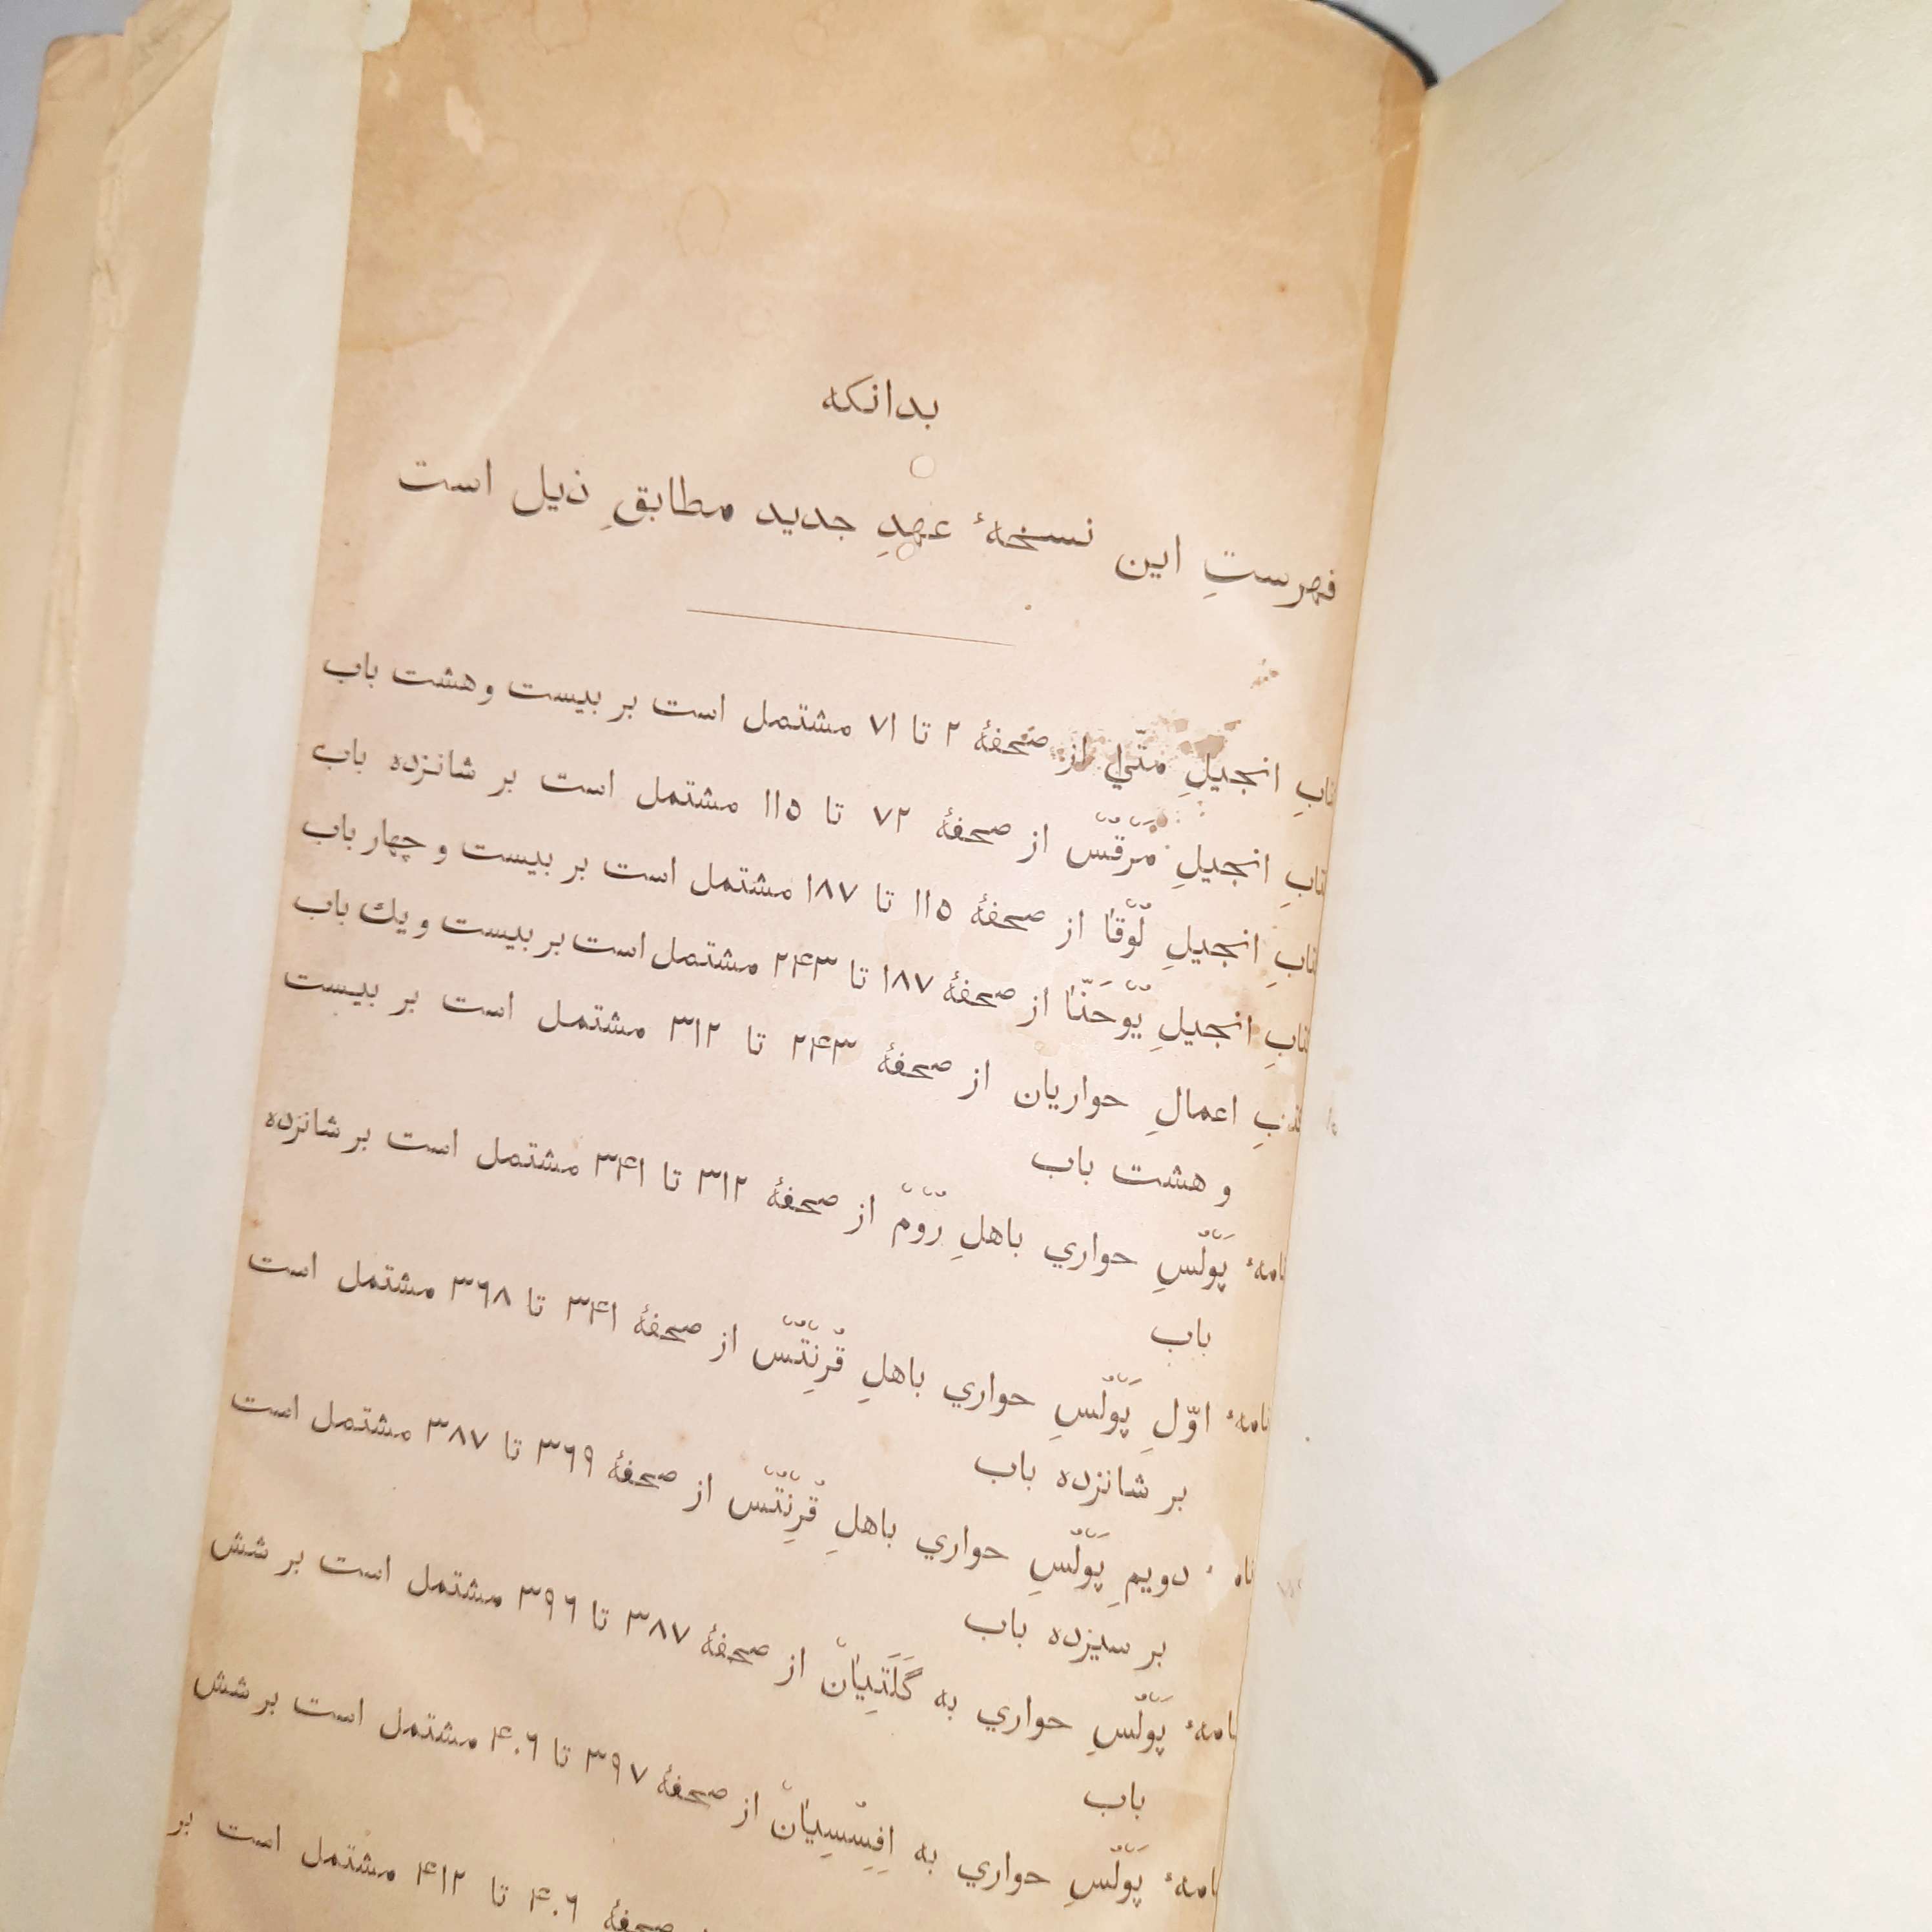 بدانکه
فهرستِ این نسخهٔ عهدِ جدید مطابقِ ذیل است
انجیلِ متّی از صحفهٔ ۲ تا ۷۱ مشتمل است بر بیست و هشت باب
انجیلِ مَرقُسْ از صحفهٔ ۷۲ تا ۱۱۵ مشتمل است بر شانزده باب
انجیلِ لُوْقا از صحفهٔ ۱۱۵ تا ۱۸۷ مشتمل است بر بیست و چهار باب
انجیلِ یُوْحَنّا از صحفهٔ ۱۸۷ تا ۲۴۳ مشتمل است بر بیست و یك باب
اعمالِ حواریان از صحفهٔ ۲۴۳ تا ۳۱۲ مشتمل است بر بیست
و هشت باب
پَوْلُسِ حواري باهلِ رُوْمْ از صحفهٔ ۳۱۲ تا ۳۴۱ مشتمل است بر شانزده
باب
نامهٔ اوّلِ پَوْلُسِ حواري باهلِ قُرِنْتُسْ از صحفهٔ ۳۴۱ تا ۳۶۸ مشتمل است
بر شانزده باب
دویمِ پَوْلُسِ حواري باهلِ قُرِنْتُسْ از صحفهٔ ۳۶۹ تا ۳۸۷ مشتمل است
بر سیزده باب
پَوْلُسِ حواري به گَلَتِیانْ از صحفهٔ ۳۸۷ تا ۳۹۶ مشتمل است بر شش
باب
پَوْلُسِ حواري به اِفِسُسِیانْ از صحفهٔ ۳۹۷ تا ۴۰۶ مشتمل است بر شش
صحفهٔ ۴۰۶ تا ۴۱۲ مشتمل است بر